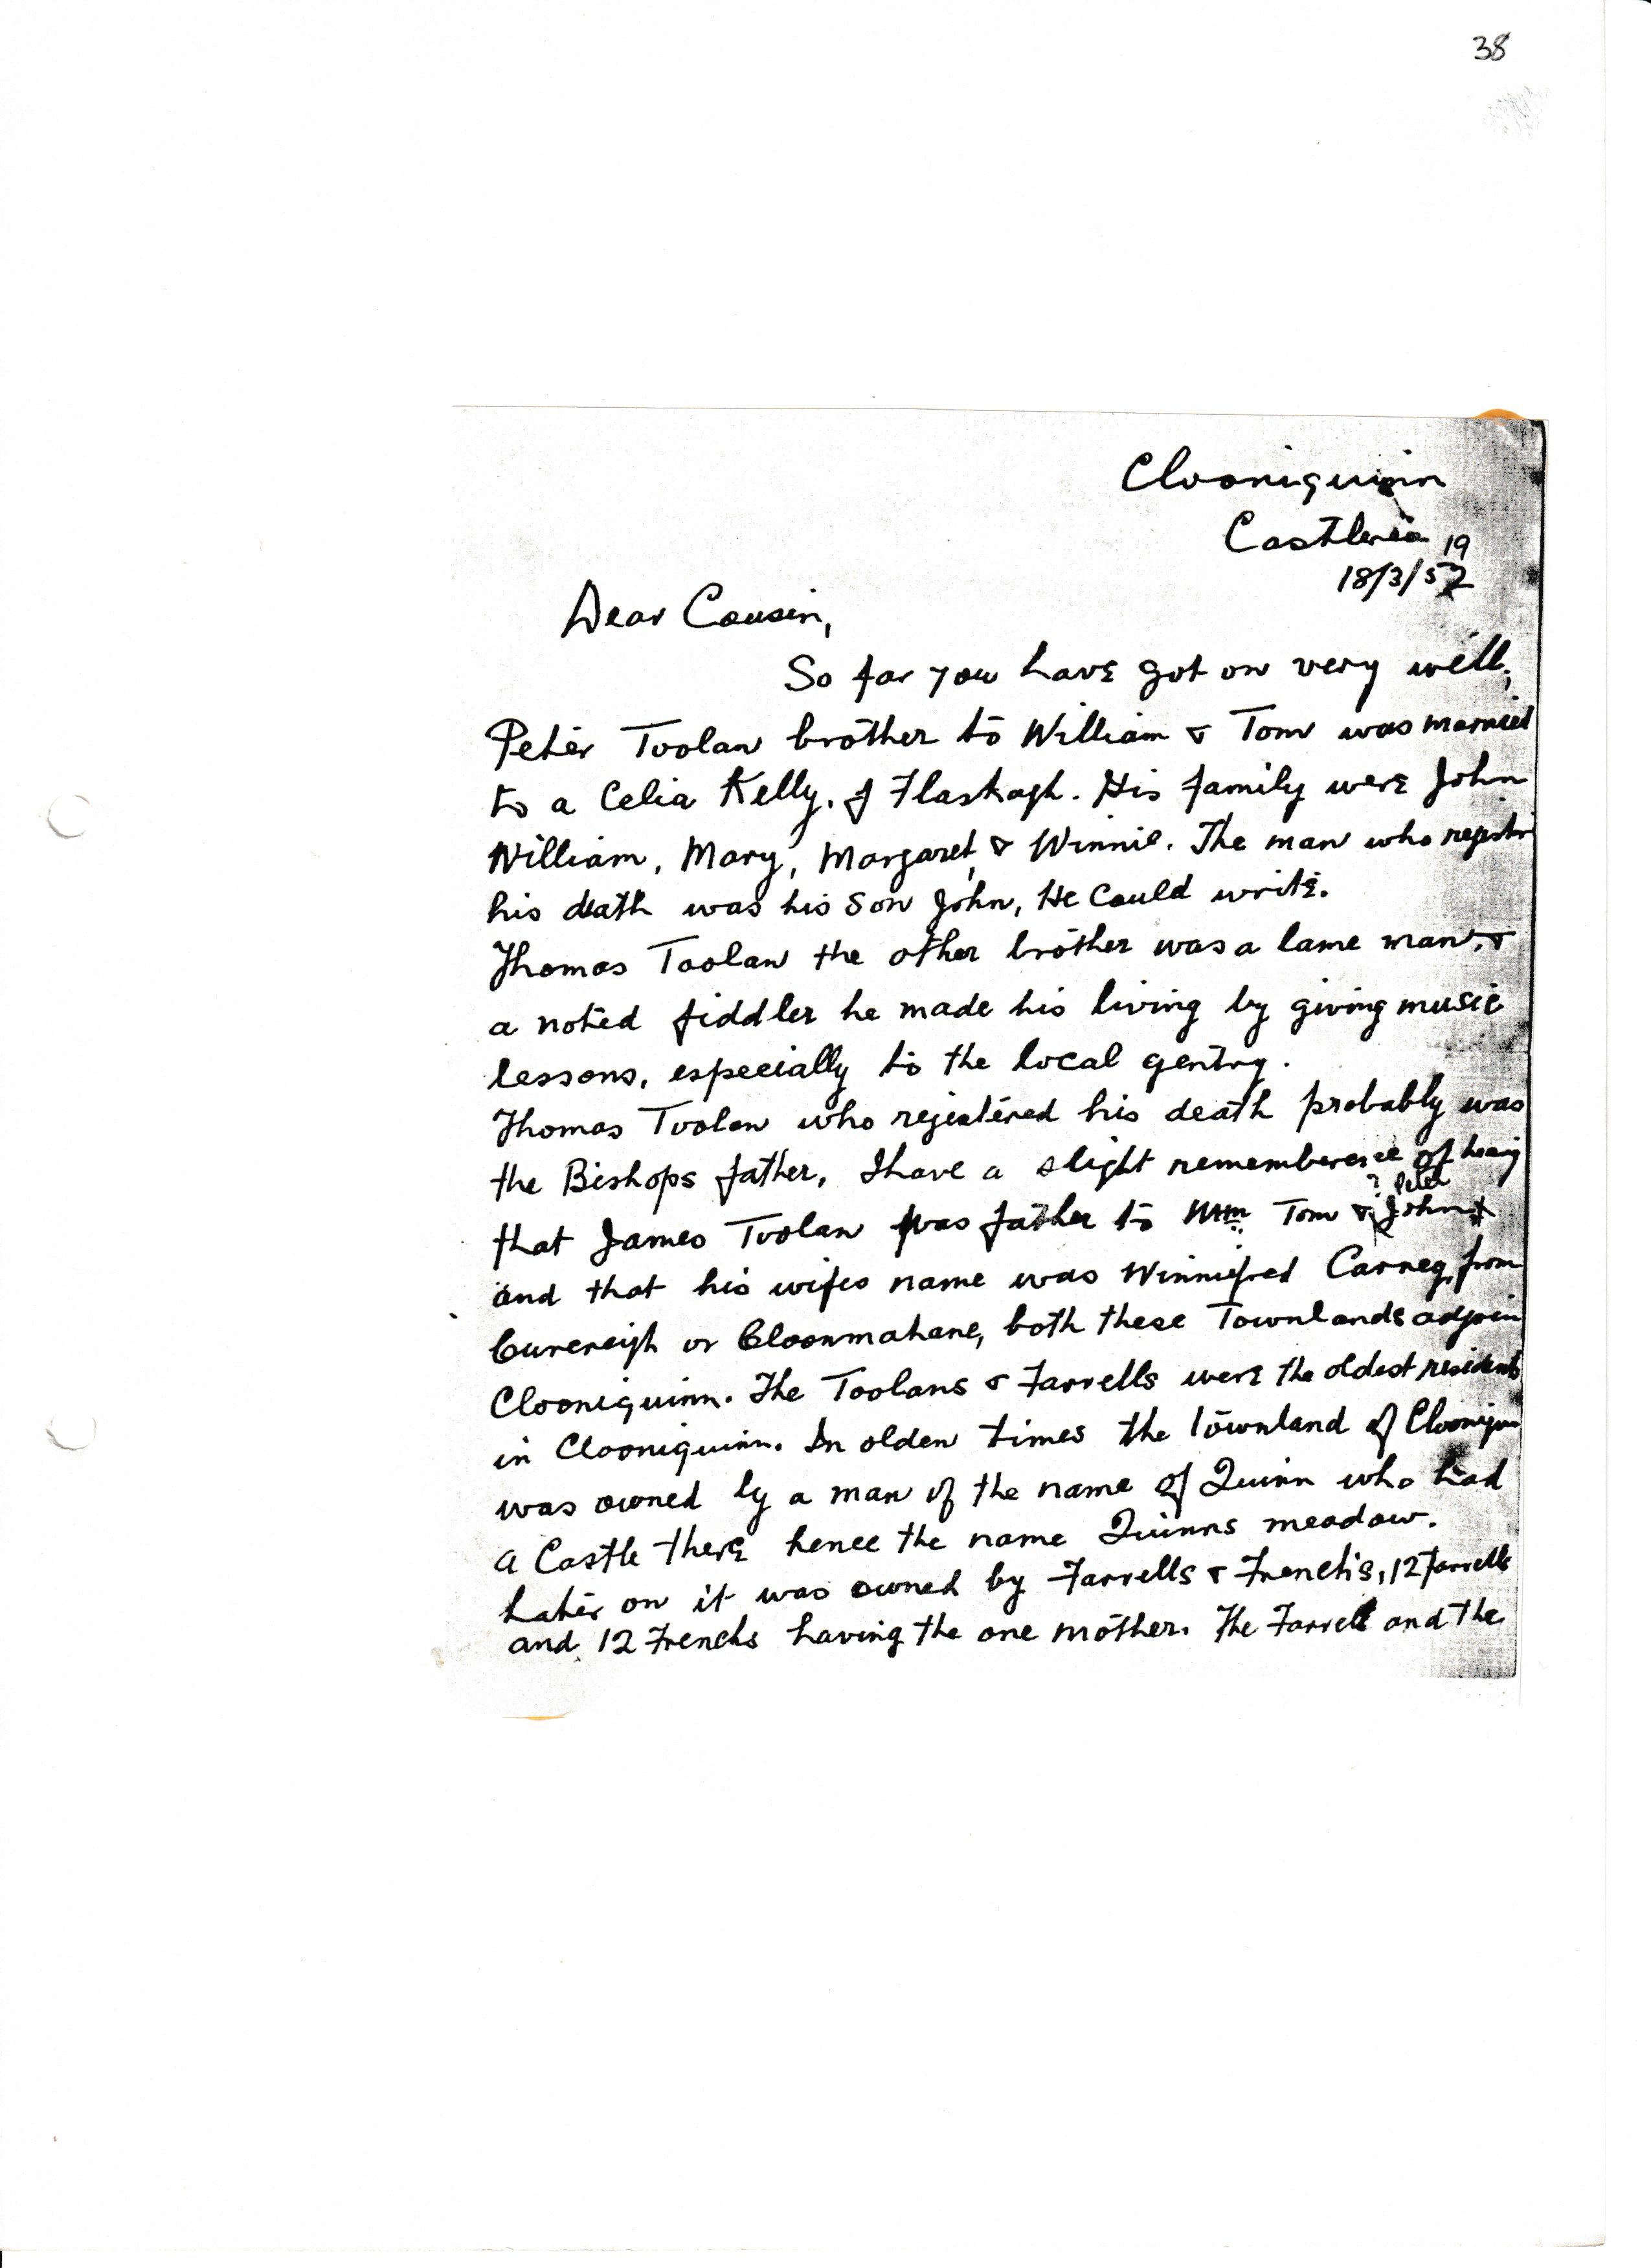 38
Clooniquinn
Castlerea
19
18/3/57
Dear Cousin,
So far you have got on very well;
Peter Toolan brother to William & Tom was married
to a Celia Kelly. of Flaskagh. His family were John
William, Mary, Margaret, & Winnie. The man who registr
his death was his son John, He could write.
Thomas Toolan the other brother was a lame man, &
a noted fiddler he made his living by giving music
lessons, especially to the local gentry.
Thomas Toolan who rejistered his death probably was
the Bishops father, I have a slight rememberence of hearig
? Peter
that James Toolan was father to Wm Tom & John
and that his wifes name was Winnifred Carney, from
or Cloonmahane, both these Townlands adjoin
Clooniquinn. The Toolans & Farrells were the oldest residents
in Clooniquinn. In olden times the townland of Clooniqu
was owned by a man of the name of Quinn who had
a Castle there hence the name Quinns meadow.
Later on it was owned by Farrells & Frenchs, 12 Farrells
and 12 Frenchs having the one mother. The Farrell and the